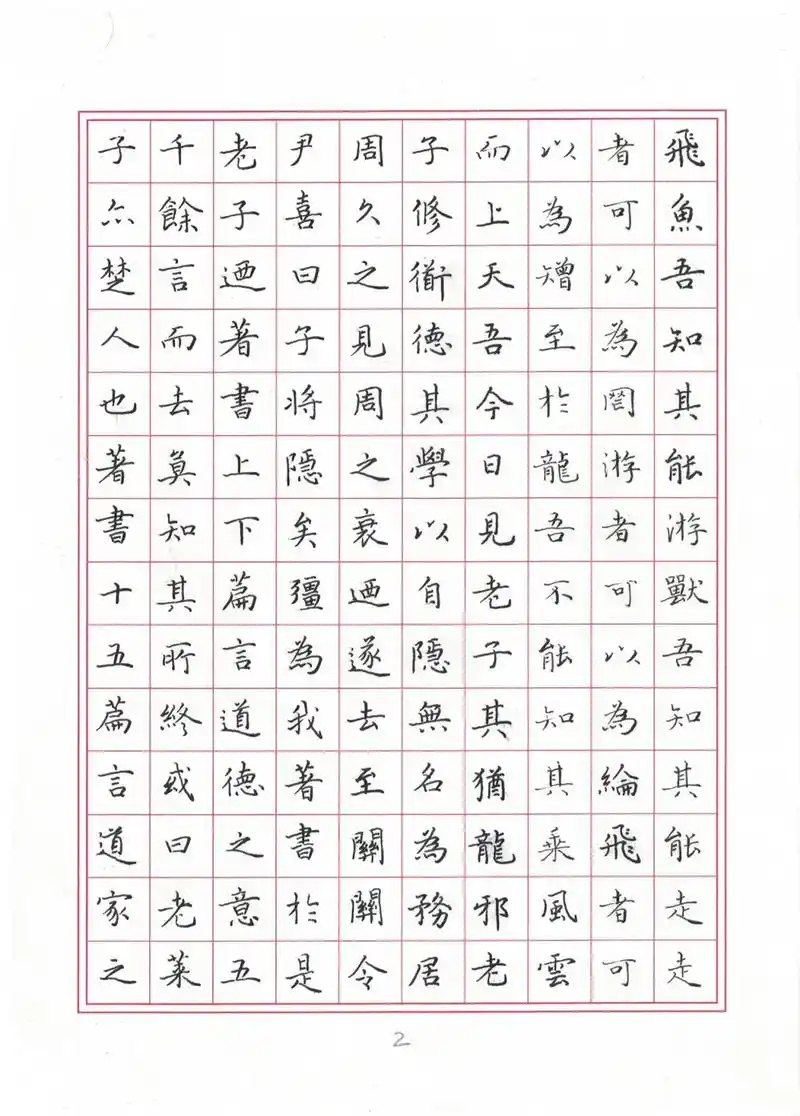 飛魚吾知其能游獸吾知其能走走
者可以為罔游者可以為綸飛者可
以為矰至於龍吾不能知其乘風雲
而上天吾今日見老子其猶龍邪老
子修衜德其學以自隱無名為務居
周久之見周之衰迺遂去至關關令
尹喜曰子將隱矣彊為我著書於是
老子迺著書上下篇言道德之意五
千餘言而去莫知其所終或曰老萊
子亦楚人也著書十五篇言道家之
2